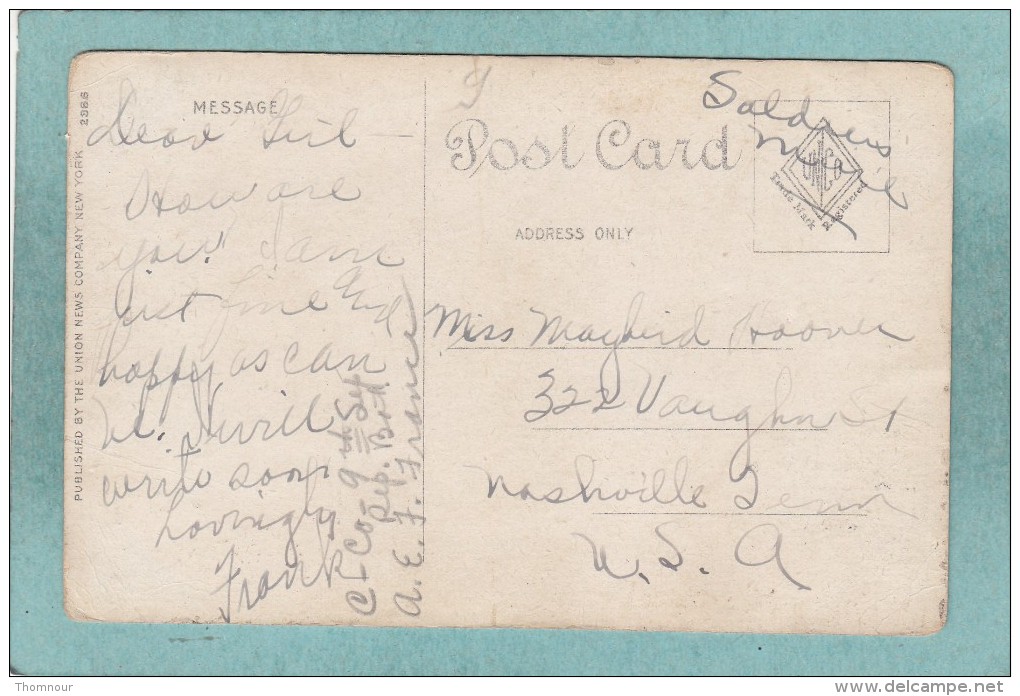 PUBLISHED BY THE UNION NEWS COMPANY, NEW YORK 2366
MESSAGE
Dear Girl
How are
you. I am
just fine and
happy as can
be. I will
write soon
Lovingly
Frank
C. Co. 9th
Dep. Batt
A. E. F. France
Post Card
ADDRESS ONLY
Soldiers
UNCo
Trade Mark Registered
Miss Maybird Hoover
322 Vaughn St
Nashville Tenn
U. S. A
Thomnour
www.delcampe.net